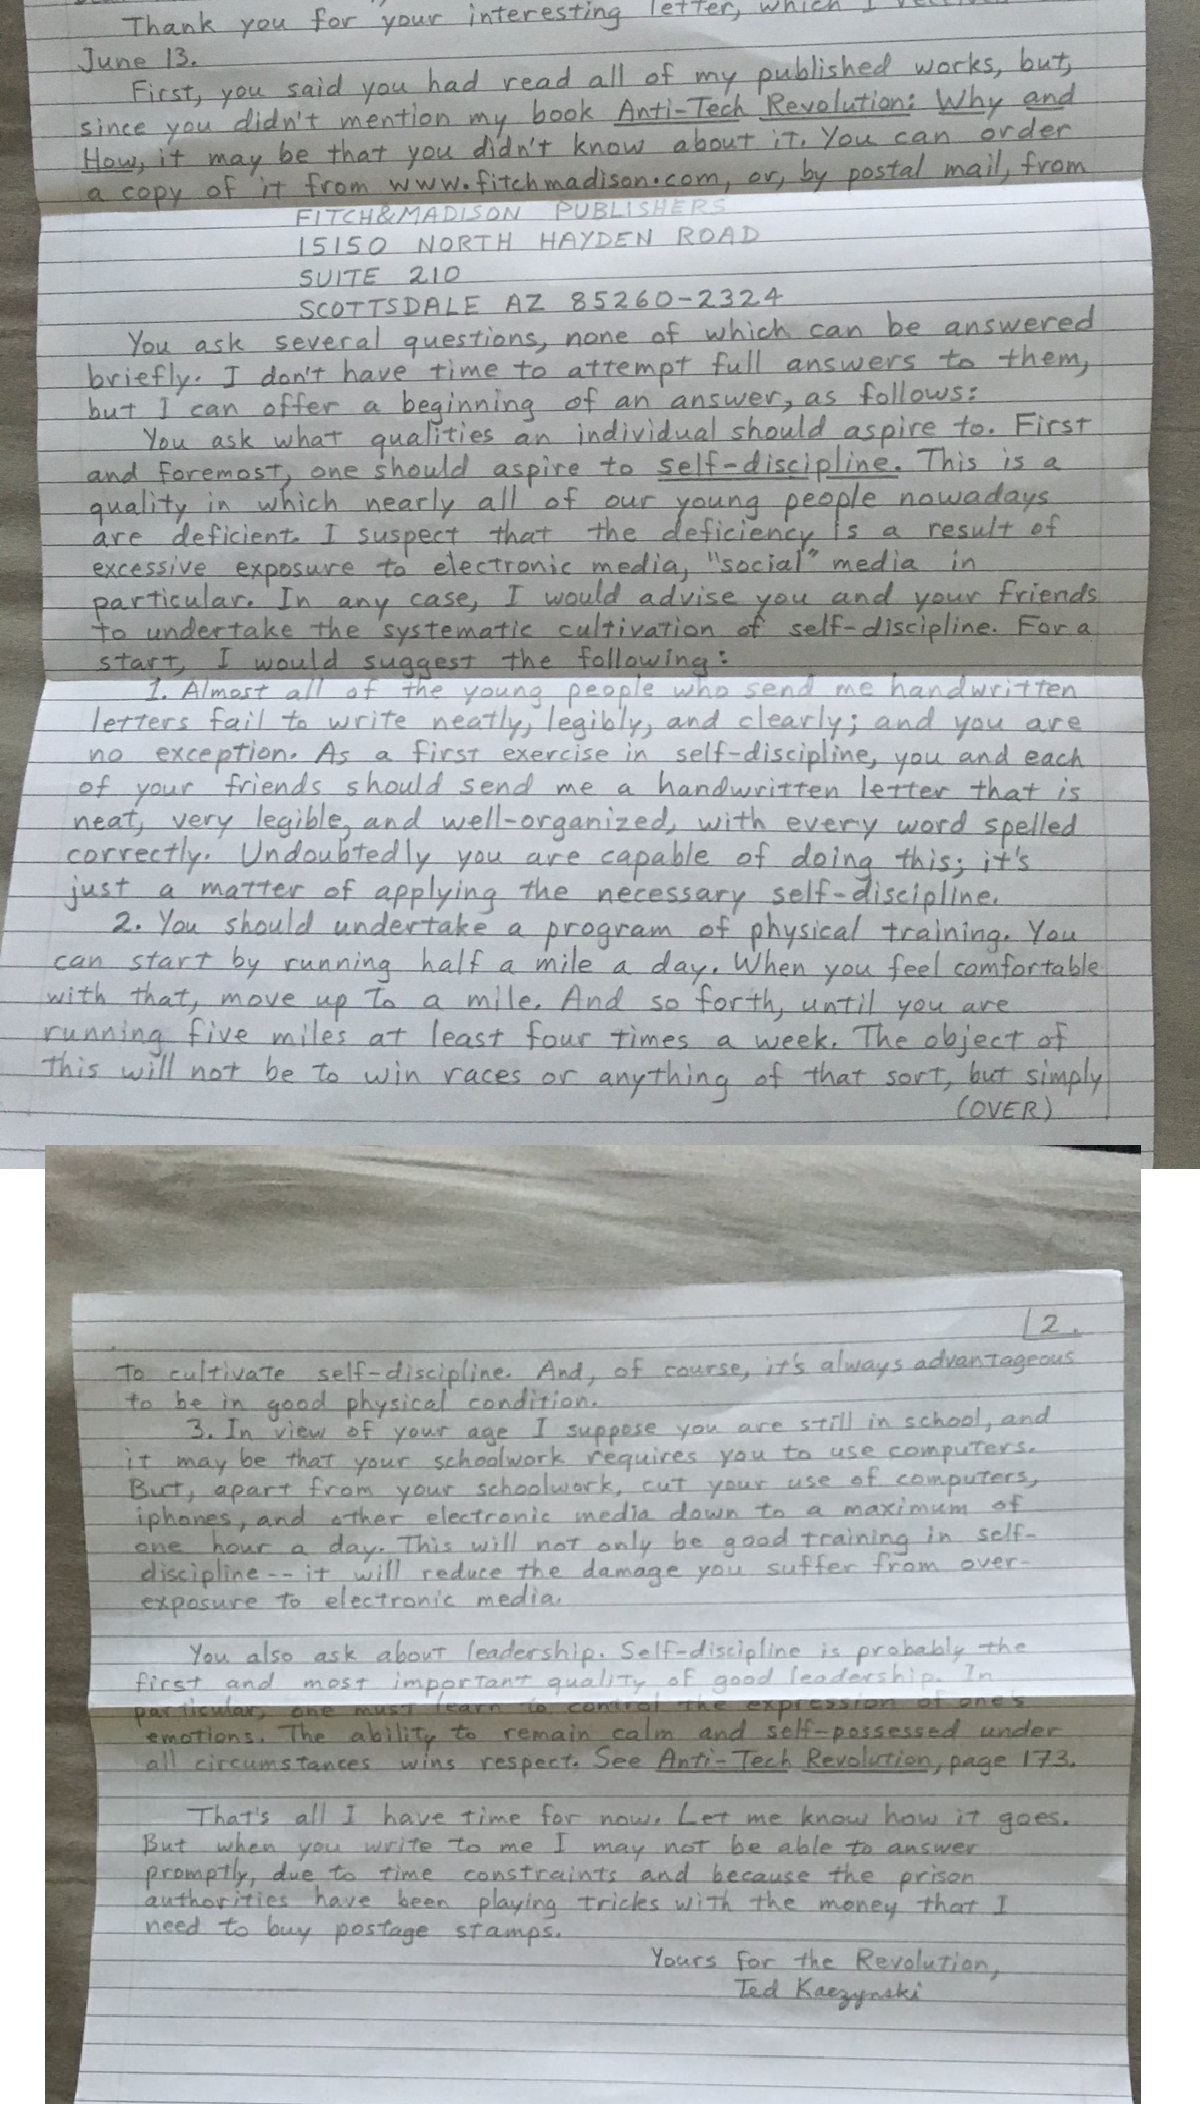 Thank you for your interesting letter, which I
June 13.
First, you said you had read all of my published works, but,
since you didn't mention my book Anti-Tech Revolution: Why and
How, it may be that you didn't know about it. You can order
a copy of it from www.fitchmadison.com, or, by postal mail, from
FITCH&MADISON PUBLISHERS
15150 NORTH HAYDEN ROAD
SUITE 210
SCOTTSDALE AZ 85260-2324
You ask several questions, none of which can be answered
briefly. I don't have time to attempt full answers to them,
but I can offer a beginning of an answer, as follows:
You ask what qualities an individual should aspire to. First
and foremost, one should aspire to self-discipline. This is a
quality in which nearly all of our young people nowadays
are deficient. I suspect that the deficiency is a result of
excessive exposure to electronic media, "social" media in
particular. In any case, I would advise you and your friends
to undertake the systematic cultivation of self-discipline. For a
start, I would suggest the following:
1. Almost all of the young people who send me handwritten
letters fail to write neatly, legibly, and clearly; and you are
no exception. As a first exercise in self-discipline, you and each
of your friends should send me a handwritten letter that is
neat, very legible, and well-organized, with every word spelled
correctly. Undoubtedly you are capable of doing this; it's
just a matter of applying the necessary self-discipline.
2. You should undertake a program of physical training. You
can start by running half a mile a day. When you feel comfortable
with that, move up to a mile. And so forth, until you are
running five miles at least four times a week. The object of
this will not be to win races or anything of that sort, but simply
(OVER)
2.
to cultivate self-discipline. And, of course, it's always advantageous
to be in good physical condition.
3. In view of your age I suppose you are still in school, and
it may be that your schoolwork requires you to use computers.
But, apart from your schoolwork, cut your use of computers,
iphones, and other electronic media down to a maximum of
one hour a day. This will not only be good training in self-
discipline -- it will reduce the damage you suffer from over-
exposure to electronic media.
You also ask about leadership. Self-discipline is probably the
first and most important quality of good leadership. In
particular, one must learn to control the expression of one's
emotions. The ability to remain calm and self-possessed under
all circumstances wins respect. See Anti-Tech Revolution, page 173.
That's all I have time for now. Let me know how it goes.
But when you write to me I may not be able to answer
promptly, due to time constraints and because the prison
authorities have been playing tricks with the money that I
need to buy postage stamps.
Yours for the Revolution,
Ted Kaczynski